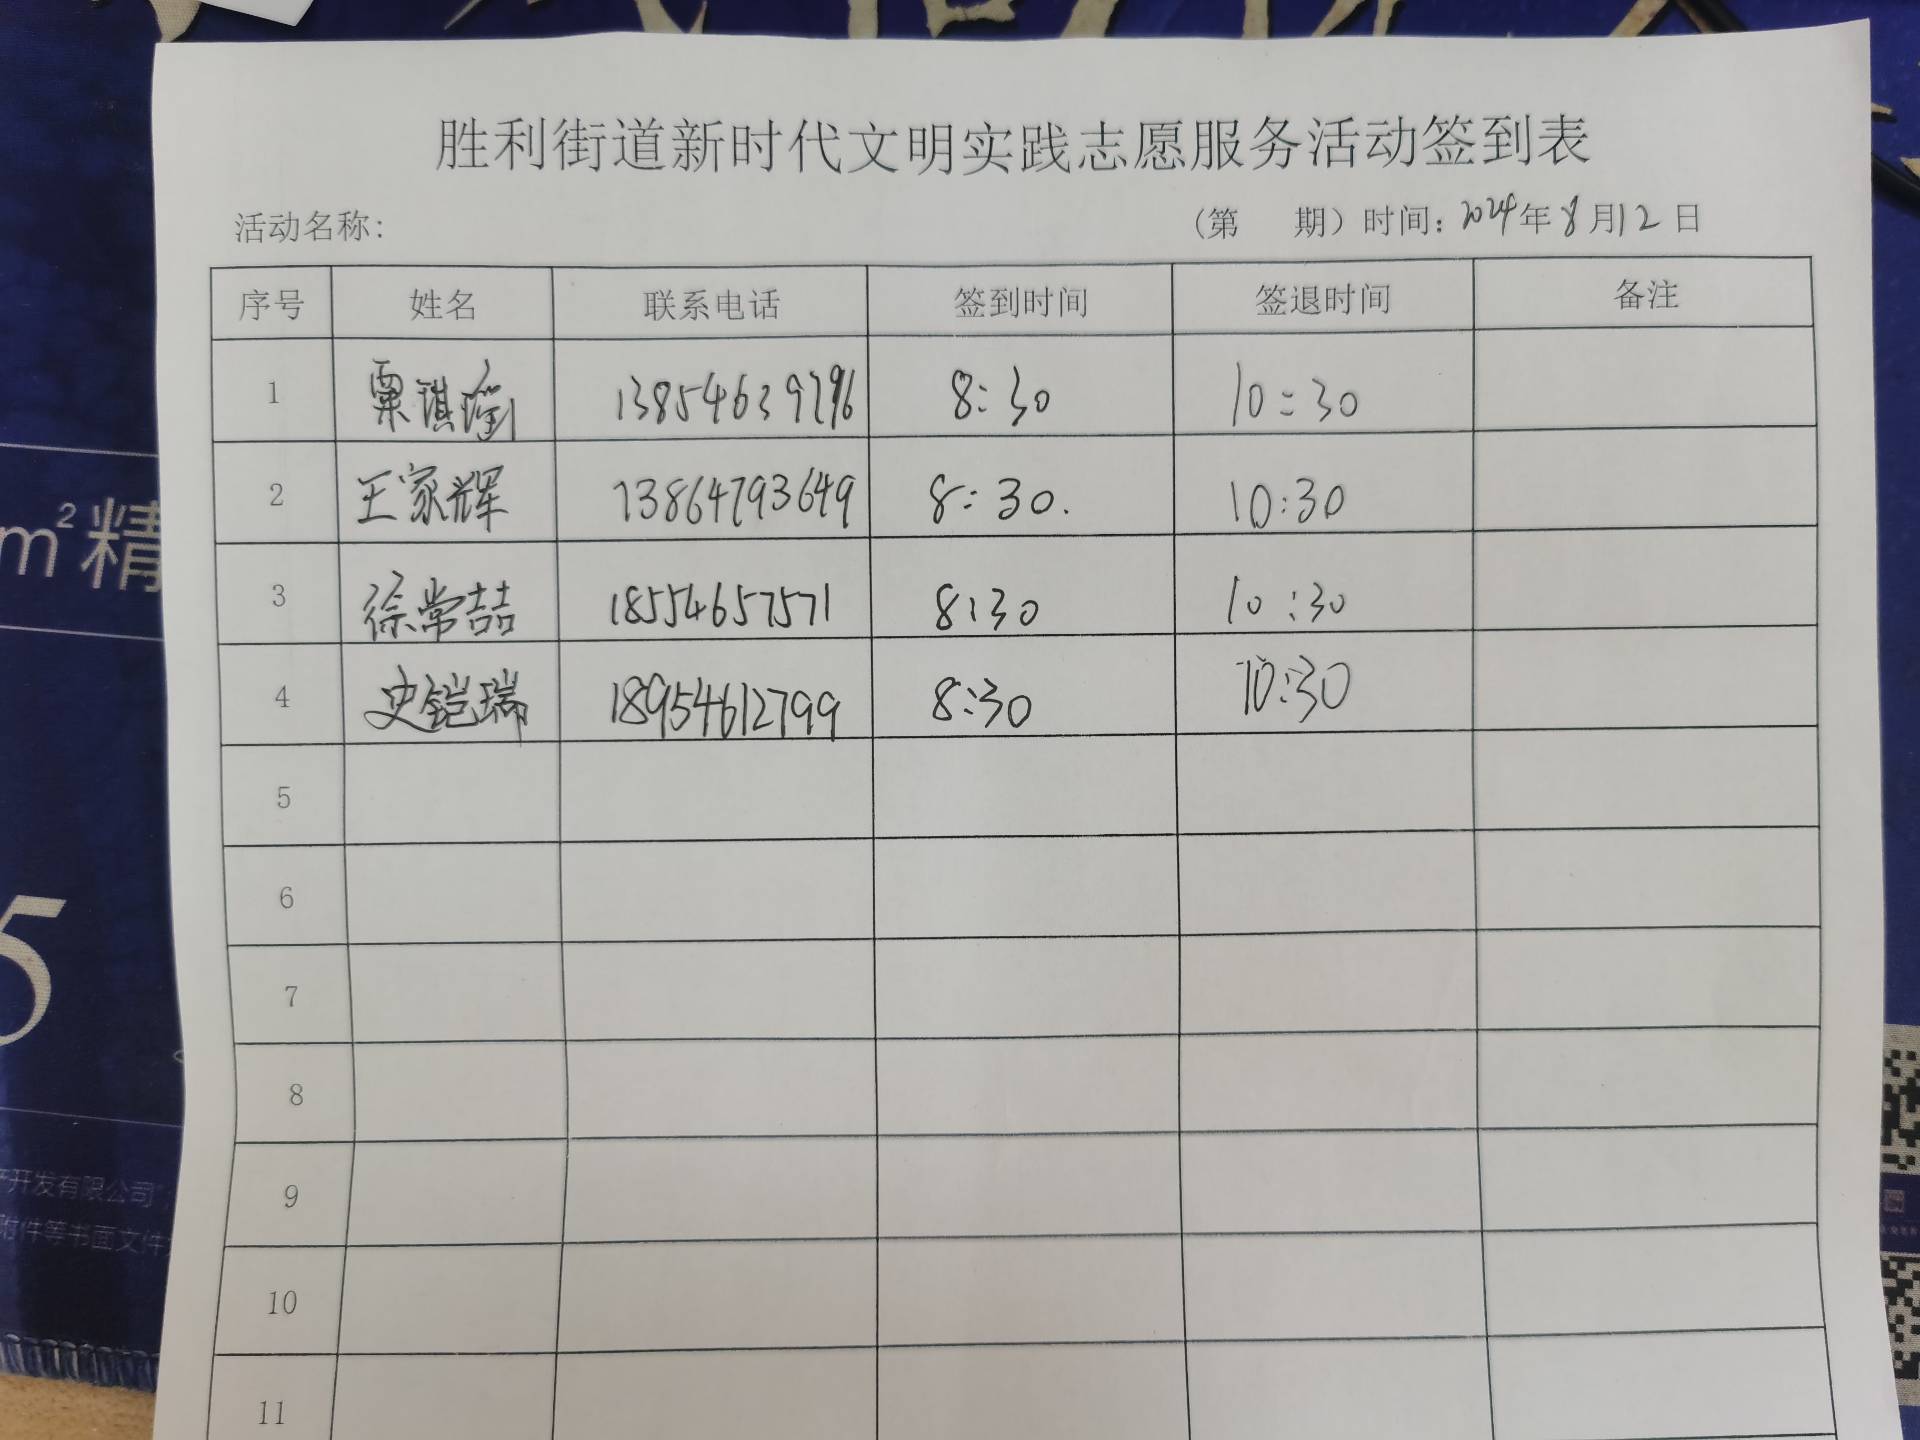 胜利街道新时代文明实践志愿服务活动签到表
活动名称: (第 期) 时间: 2024年8月12日
序号 姓名 联系电话 签到时间 签退时间 备注
1 粟琪瑜 13854639796 8:30 10:30
2 王家辉 13864793649 8:30. 10:30
3 徐常喆 18554657571 8:30 10:30
4 史铠瑞 18954612799 8:30 10:30
5
6
7
8
9
10
11
m²精
5
开发有限公司
附件等书面文件